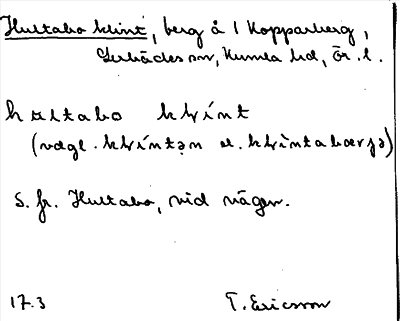 Hultabo klint, berg å 1 Kopparberg,
Lerbäcks sn, Kumla hd, Ör. l.
hultabo klint
(vogl. klintən el. klintabærjə)
S. fr. Hultabo, vid vägen.
17.3 T. Ericsson